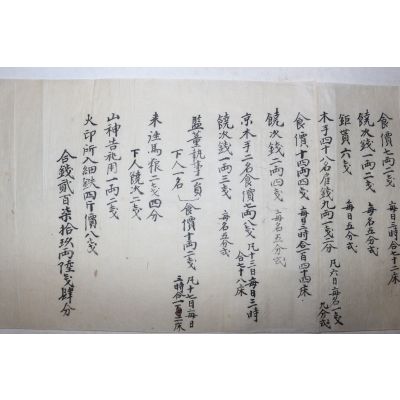 食價七兩二戔 每日三時合七十二床
饒次錢一兩二戔 每名五分式
鉅貰六戔 每日五分式
木手四十八名雇錢九兩二戔一分 凡六日每名一戔九分式
食價十四兩四戔 每日三時合一百四十四床
饒次錢二兩四戔 每名五分式
京木手二名食價七兩八戔 凡十三日每日三時合七十八床
饒次錢一兩三戔 每名五分式
監董執事一員 下人一名 食價十兩二戔 凡十七日每日三時合一百二床
來往馬粮七戔四分
下人饒次二戔
山神告祀用一兩二戔
火印所入細鉄四斤價八戔
合錢貳百柒拾玖兩陸戔肆分